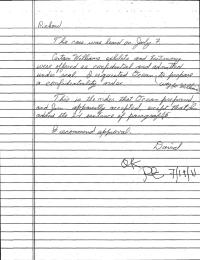 Richard
This case was heard on July 7
Certain Williams exhibits and testimony
were offered as confidential and admitted
under seal. I requested Ocean to prepare
a confidentiality order
This is the order that Ocean prepared
and Jim apparently accepted except that he
added the 2d sentence of paragraph
I recommend approval.
David
OK
7/19/11